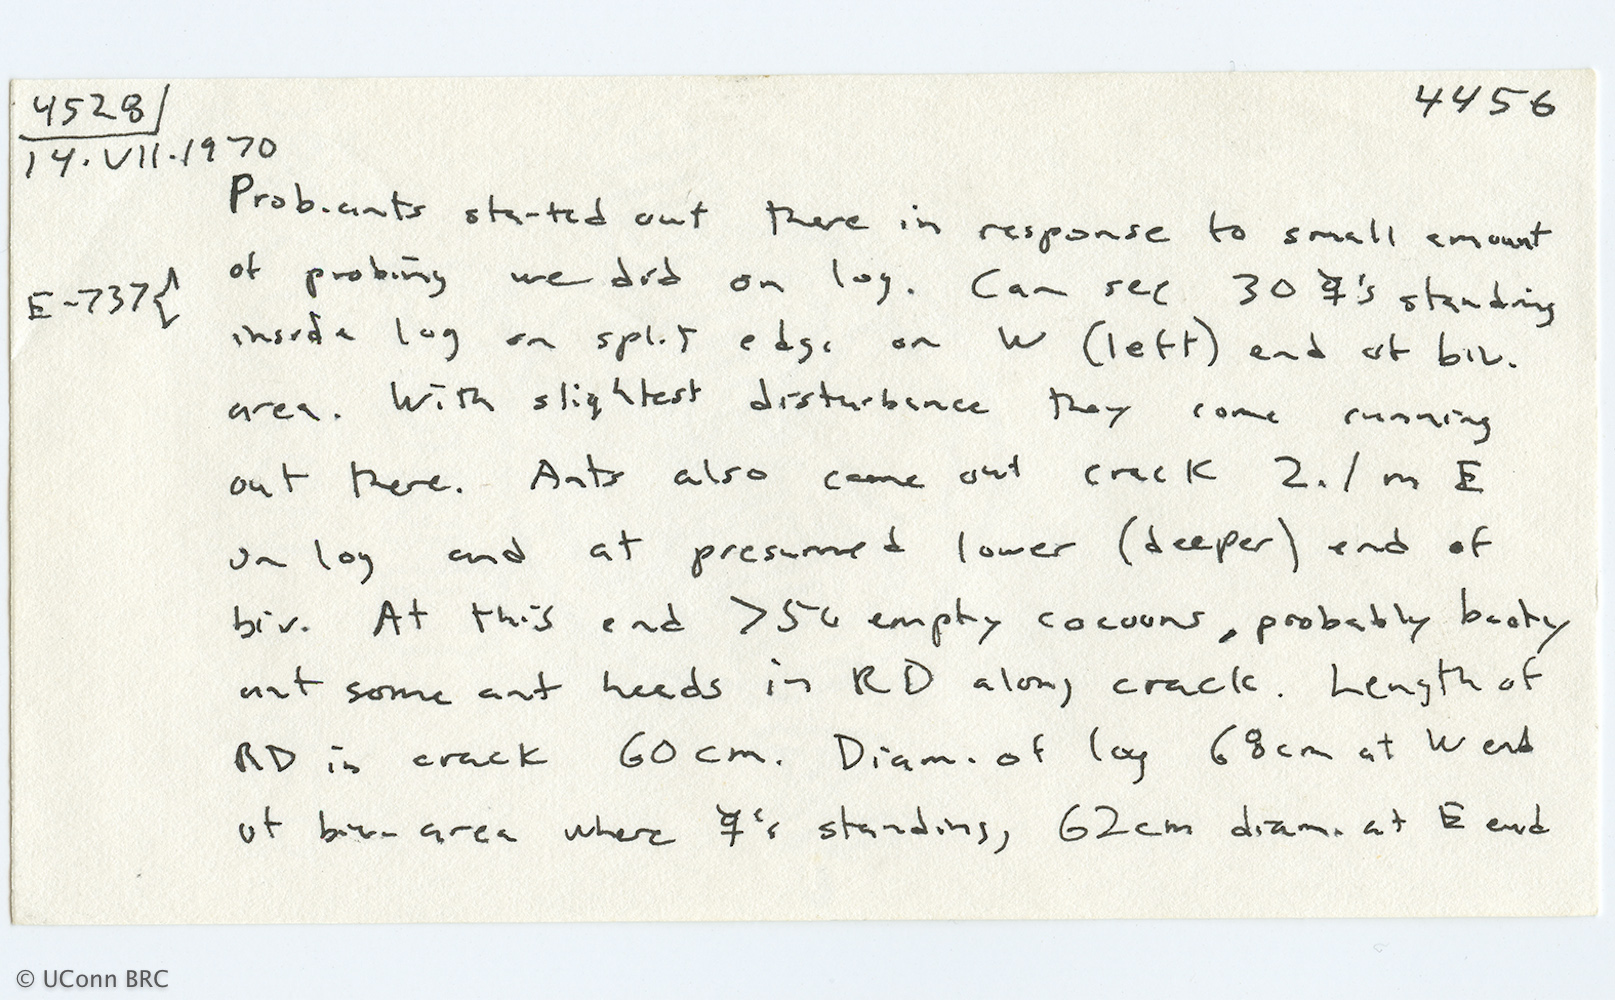 4528
4456
14.VII.1970
Prob. ants started out there in response to small amount
of probing we did on log. Can see 30 ☿'s standing
E-737{
inside log on split edge on W (left) end of biv.
area. With slightest disturbance they come running
out there. Ants also came out crack 2.1 m E
on log and at presumed lower (deeper) end of
biv. At this end > empty cocoons, probably booty
ant some ant heads in RD along crack. Length of
RD in crack 60 cm. Diam. of log 68 cm at W end
of biv. area where ☿'s standing, 62 cm diam. at E end
© UConn BRC